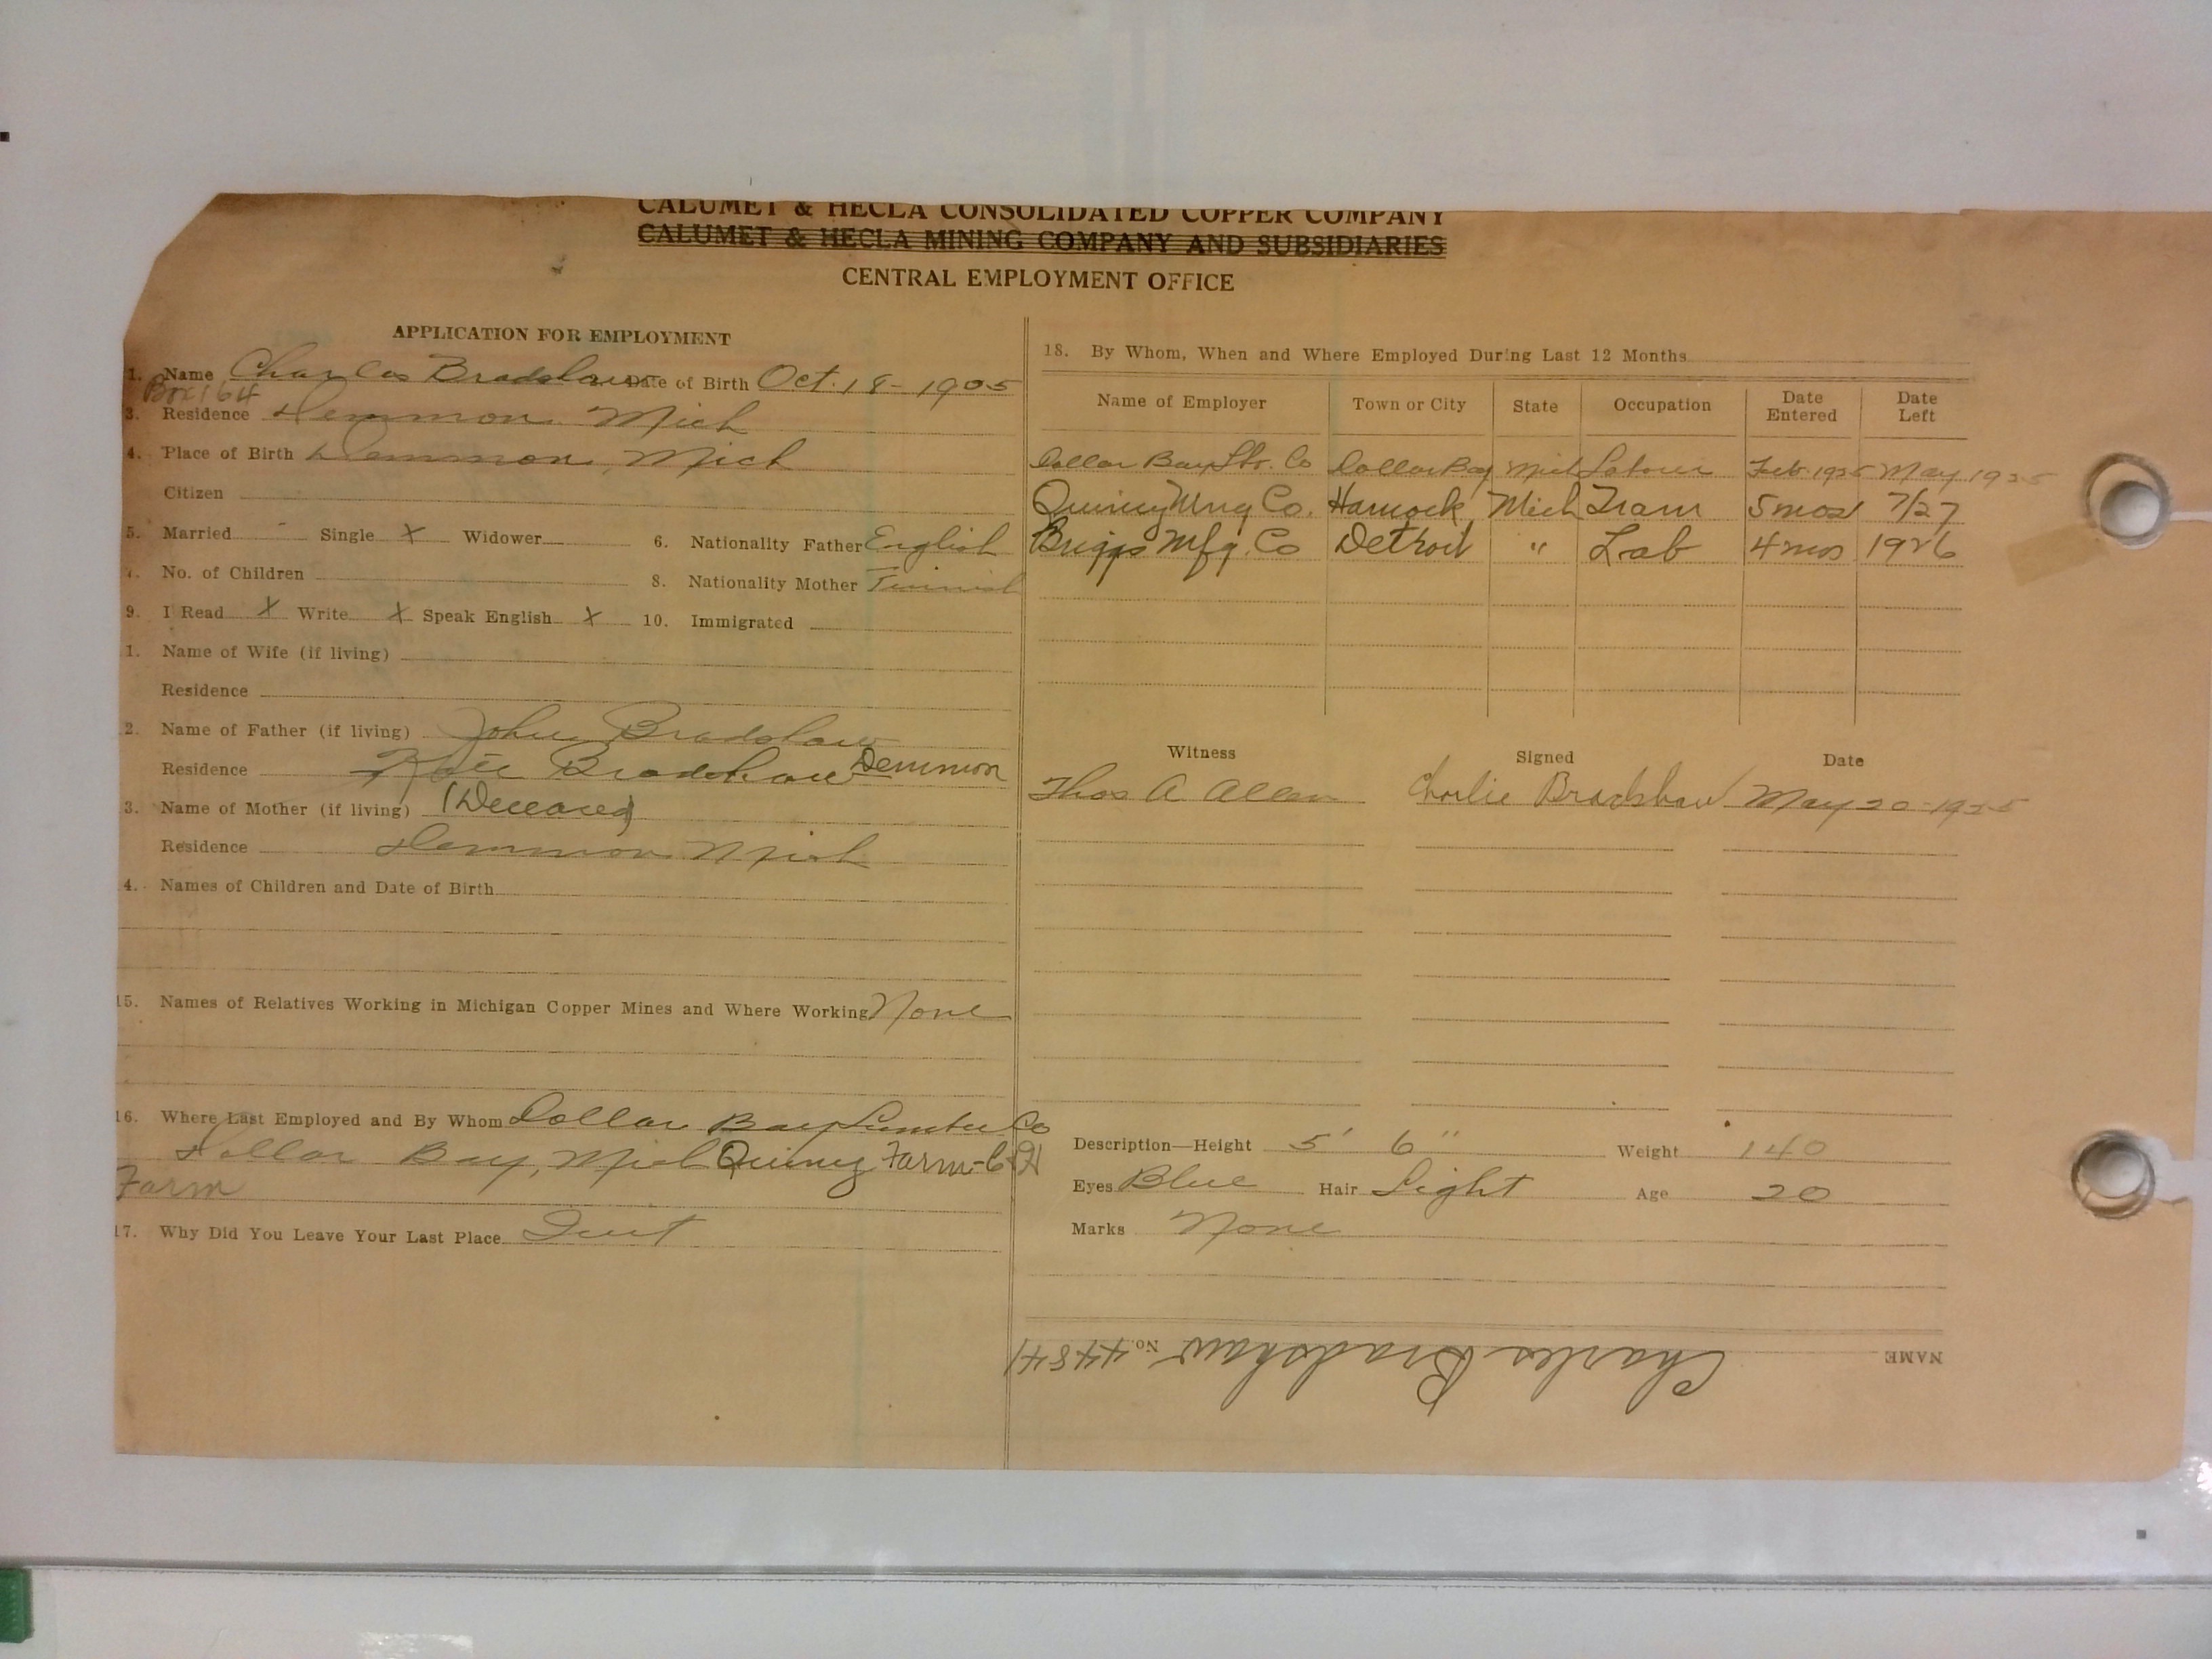 CALUMET & HECLA CONSOLIDATED COPPER COMPANY
CALUMET & HECLA MINING COMPANY AND SUBSIDIARIES
CENTRAL EMPLOYMENT OFFICE
APPLICATION FOR EMPLOYMENT
1. Name Charles Bradshaw Date of Birth Oct. 18-1905
Box 164
3. Residence Demmon Mich
4. Place of Birth Demmon, Mich
Citizen
5. Married Single X Widower 6. Nationality Father English
No. of Children 8. Nationality Mother Finnish
9. I Read X Write X Speak English X 10. Immigrated
1. Name of Wife (if living)
Residence
2. Name of Father (if living) John Bradshaw
Residence Bradshaw Demmon
3. Name of Mother (if living) (Deceased)
Residence Demmon Mich
4. Names of Children and Date of Birth
15. Names of Relatives Working in Michigan Copper Mines and Where Working None
16. Where Last Employed and By Whom Dollar Bay Lumber Co
Dollar Bay, Mich Quincy Farm - C & H
Farm
17. Why Did You Leave Your Last Place Quit
18. By Whom, When and Where Employed During Last 12 Months
Name of Employer Town or City State Occupation Date Entered Date Left
Dollar Bay Lbr. Co Dollar Bay Mich Laborer Feb-1925 May 1925
Quincy Mng Co. Hancock Mich Tram 5 mos 7/27
Briggs Mfg. Co Detroit " Lab 4 mos 1926
Witness Signed Date
Thos A Allen Charlie Bradshaw May 20-1925
Description—Height 5' 6" Weight 140
Eyes Blue Hair Light Age 20
Marks None
NAME Charles Bradshaw No. 44841